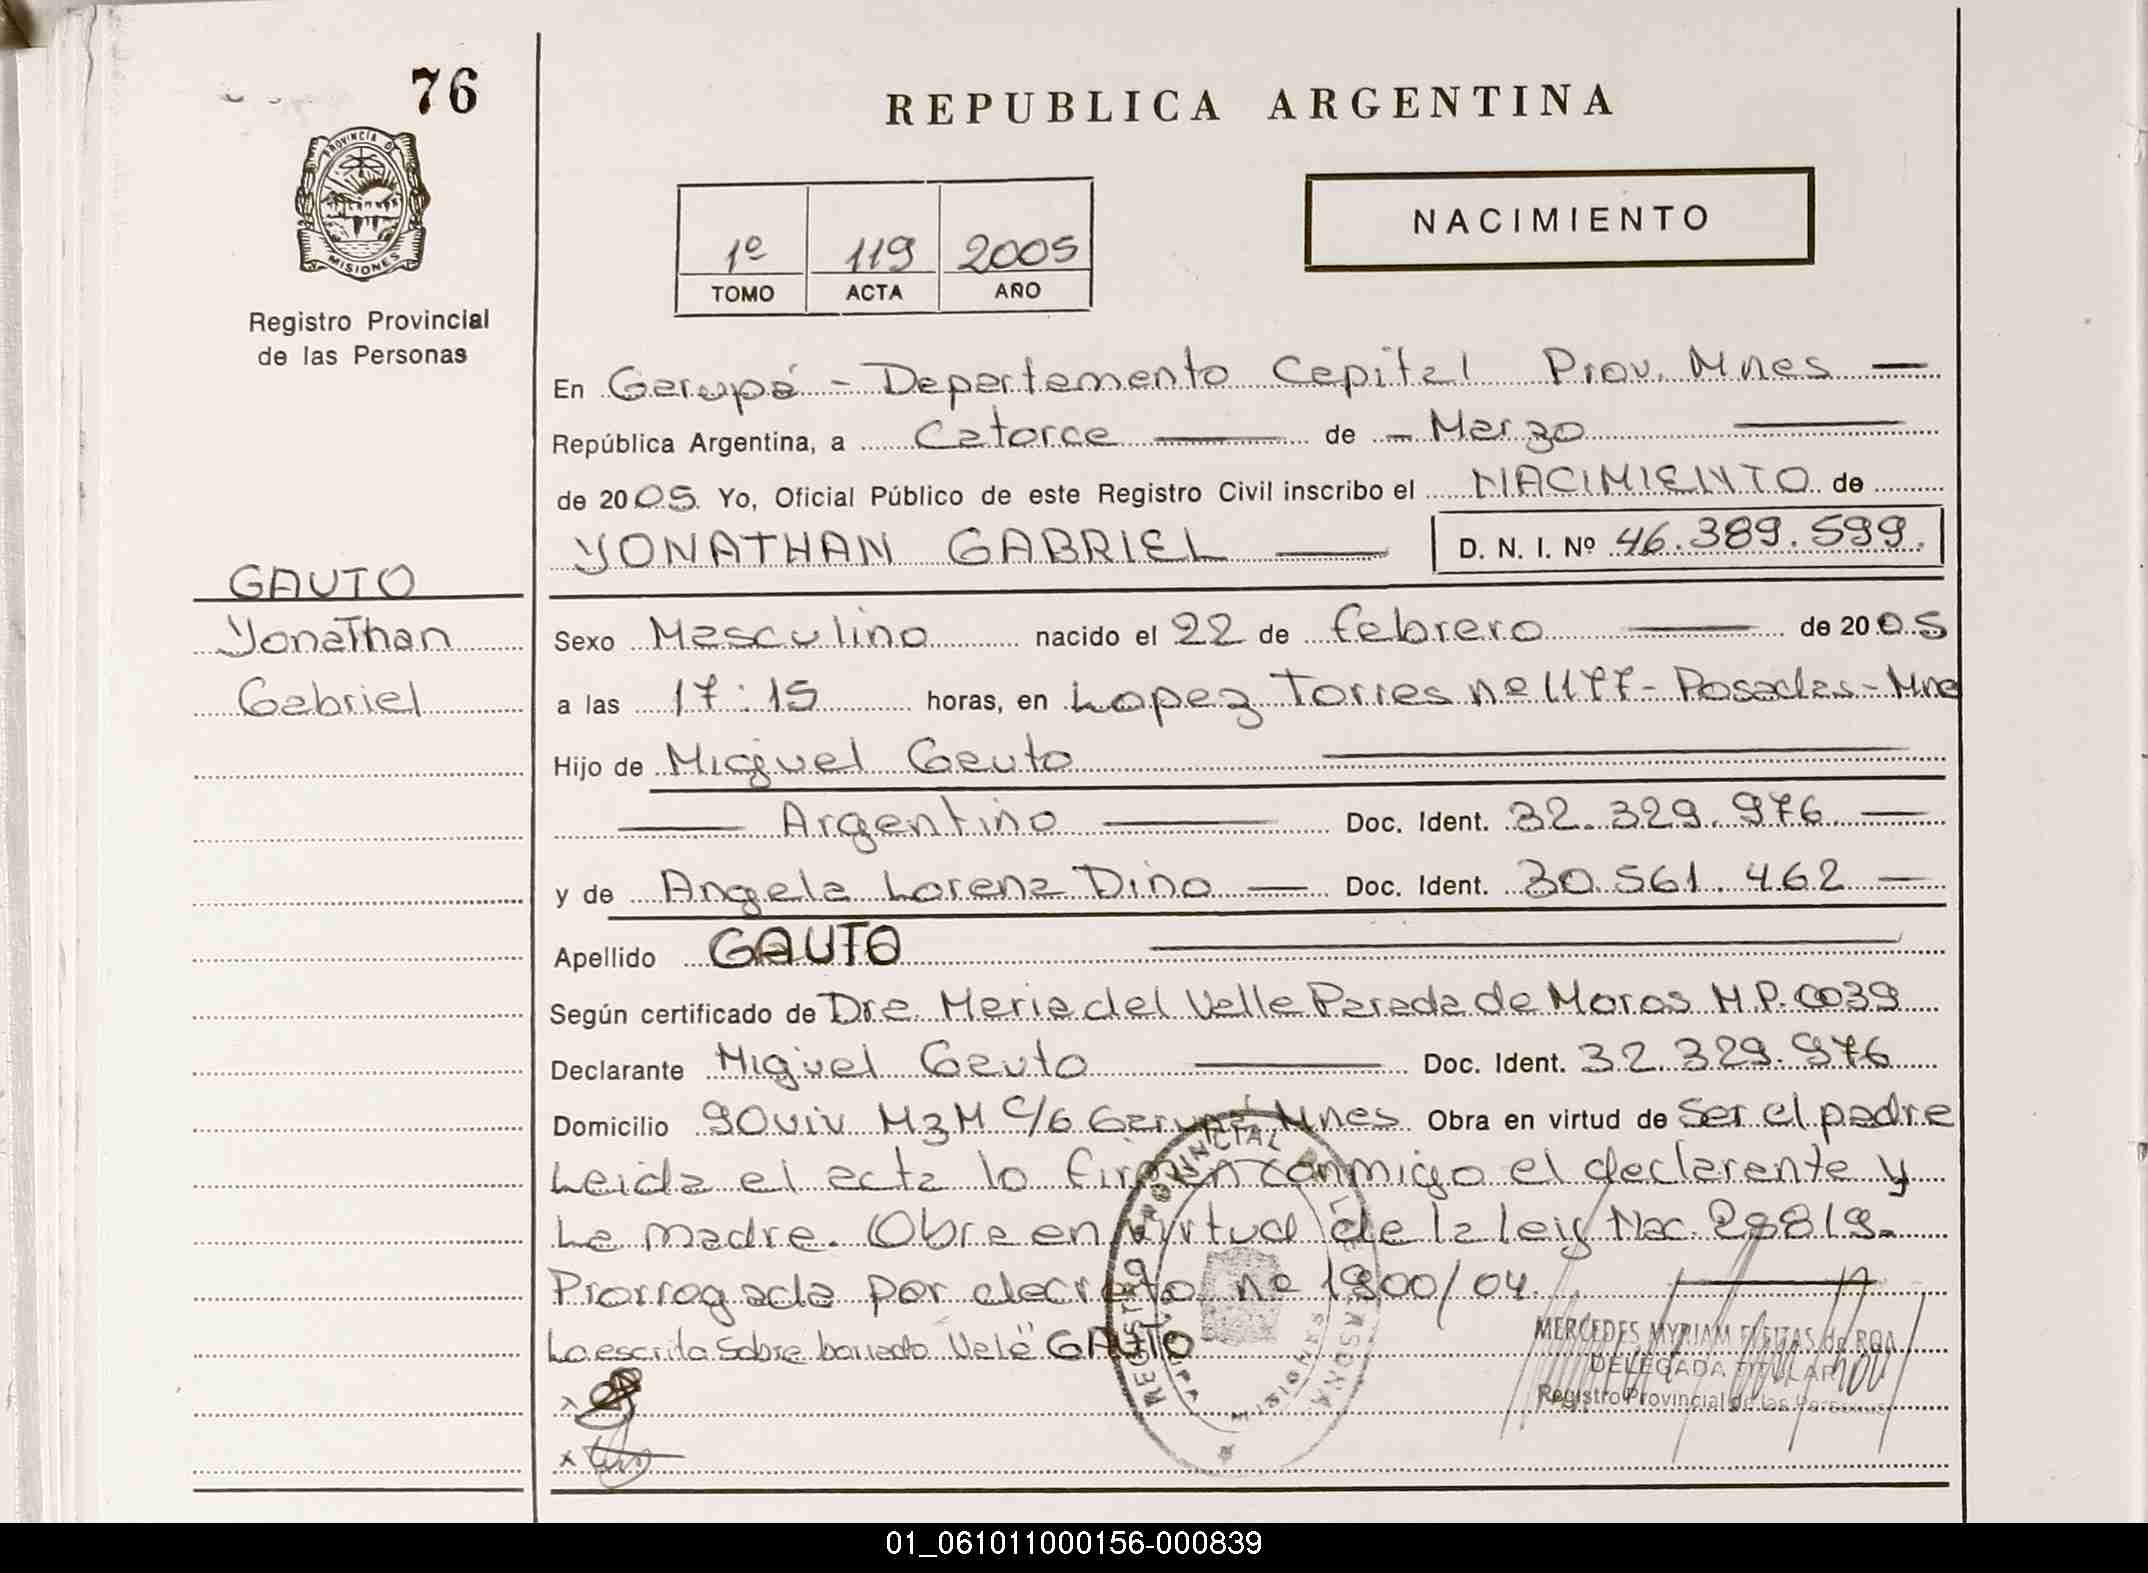 76
REPUBLICA ARGENTINA
PROVINCIA DE
MISIONES
NACIMIENTO
1º 119 2005
TOMO ACTA AÑO
Registro Provincial
de las Personas
En Garupá - Departamento Capital Prov. Mnes
República Argentina, a Catorce de Marzo
de 2005 Yo, Oficial Público de este Registro Civil inscribo el NACIMIENTO de
YONATHAN GABRIEL D. N. I. Nº 46.389.599.
GAUTO
Yonathan
Gabriel
Sexo Masculino nacido el 22 de febrero de 2005
a las 17:15 horas, en Lopez Torres nº 1177 - Posadas - Mne
Hijo de Miguel Gauto
Argentino Doc. Ident. 32.329.976
y de Angela Lorena Dino Doc. Ident. 30.561.462
Apellido GAUTO
Según certificado de Dra. Maria del Valle Parada de Moras M.P. 0039
Declarante Miguel Gauto Doc. Ident. 32.329.976
Domicilio 90 viv Mz M C/6 Garupá Mnes Obra en virtud de Ser el padre
Leida el acta lo firman conmigo el declarante y
La madre. Obra en virtud de la ley Nac. 25819.
Prorrogada por decreto nº 1900/04
Lo escrito sobre borrado Vale "GAUTO
x
x
REGISTRO PROVINCIAL DE LAS PERSONAS
MISIONES
MERCEDES MYRIAM FLEITAS de ROA
DELEGADA TITULAR
Registro Provincial de las Personas
01_061011000156-000839